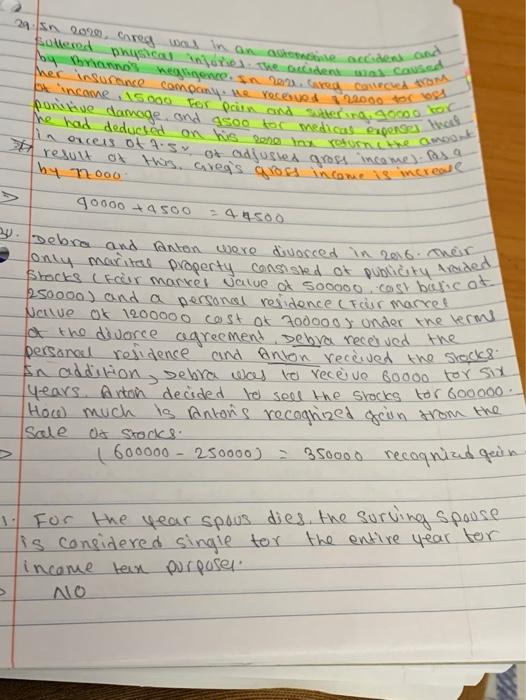 29. In 2020, Greg was in an automobile accident and
suffered physical injuries. The accident was caused
by Brianna's negligence. In 2021, Greg collected from
her insurance company. He received $22000 for loss
of income, 15000 For pain and suffering, 40000 for
punitive damage, and 4500 for medical expenses that
he had deducted on his 2020 tax return (the amount
in excess of 7.5% of adjusted gross income). As a
result of this, Greg's gross income is increase
by 77000.
40000 + 4500 = 44500
30. Debra and Anton were divorced in 2016. Their
only marital property consisted of publicity traded
stocks (Fair market value of 500000, cost basic of
250000) and a personal residence (Fair market
value of 1200000 cost of 700000) under the terms
of the divorce agreement, Debra received the
personal residence and Anton received the stocks.
In addition, Debra was to receive 60000 for six
years. Anton decided to sell the stocks for 600000.
How much is Anton's recognized gain from the
sale of stocks.
(600000 - 250000) = 350000 recognized gain
1. For the year spous dies, the surving spouse
is considered single for the entire year for
income tax purposes.
NO